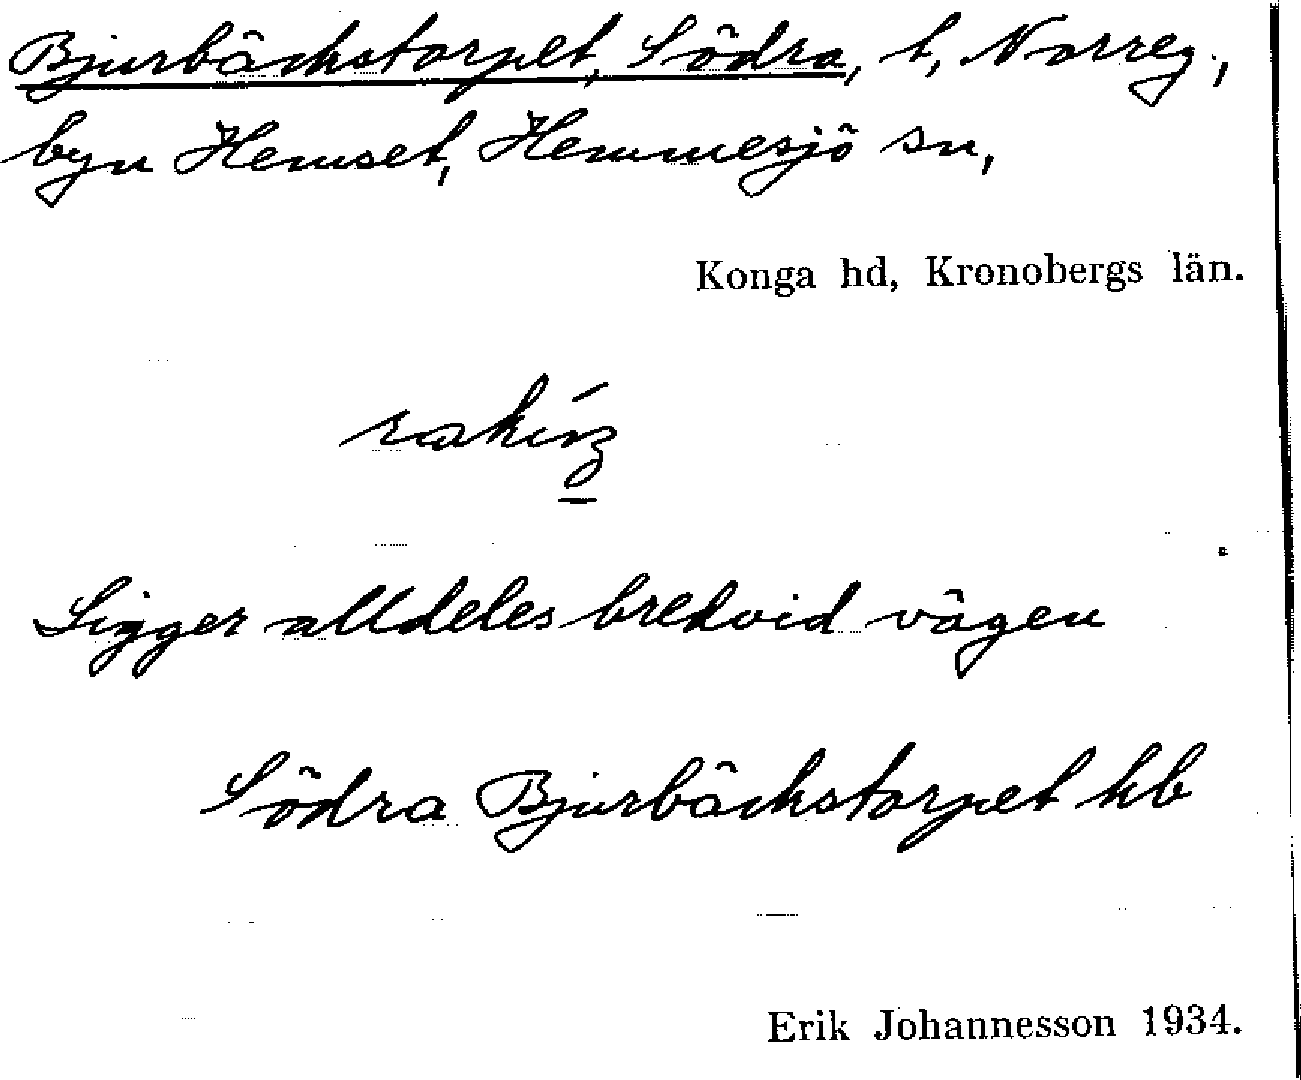 Bjurbäckstorpet, Södra, t, Norreg.,
byn Hemset, Hemmesjö sn,
Konga hd, Kronobergs län.
Ligger alldeles bredvid vägen
Södra Bjurbäckstorpet hb
Erik Johannesson 1934.